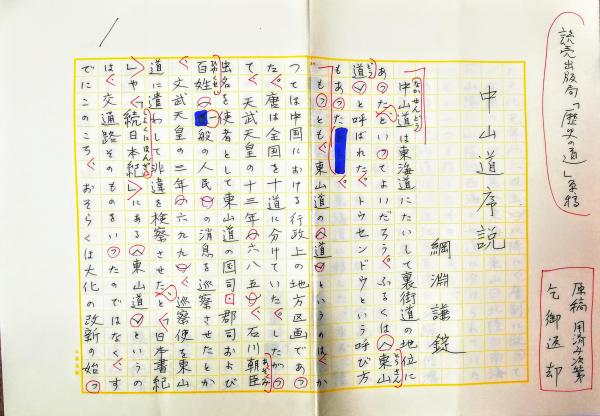 読売出版局「歴史の道」原稿
原稿用済み次第
乞御返却
中山道序説
綱淵謙錠
中山道は東海道にたいして裏街道の地位に
あったといってよいだろう。ふるくは〈東山
道〉と呼ばれた。トウセンドウという呼び方
もあった。
もっとも、東山道の〈道〉というのは、か
つては中国における行政上の地方区画であっ
た。唐は全国を十道に分けていた。したがっ
て、天武天皇の十三年(六八五)、石川朝臣
虫名を使者として東山道の国司・郡司および
百姓(一般の人民)の消息を巡察させたとか
、文武天皇の三年(六九九)、巡察使を東山
道に遣わして非違を検察させた、と『日本書紀
』や『続日本紀』にある〈東山道〉というの
は、交通路そのものをいったのではなく、す
でにこのころ、おそらくは大化の改新の始っ